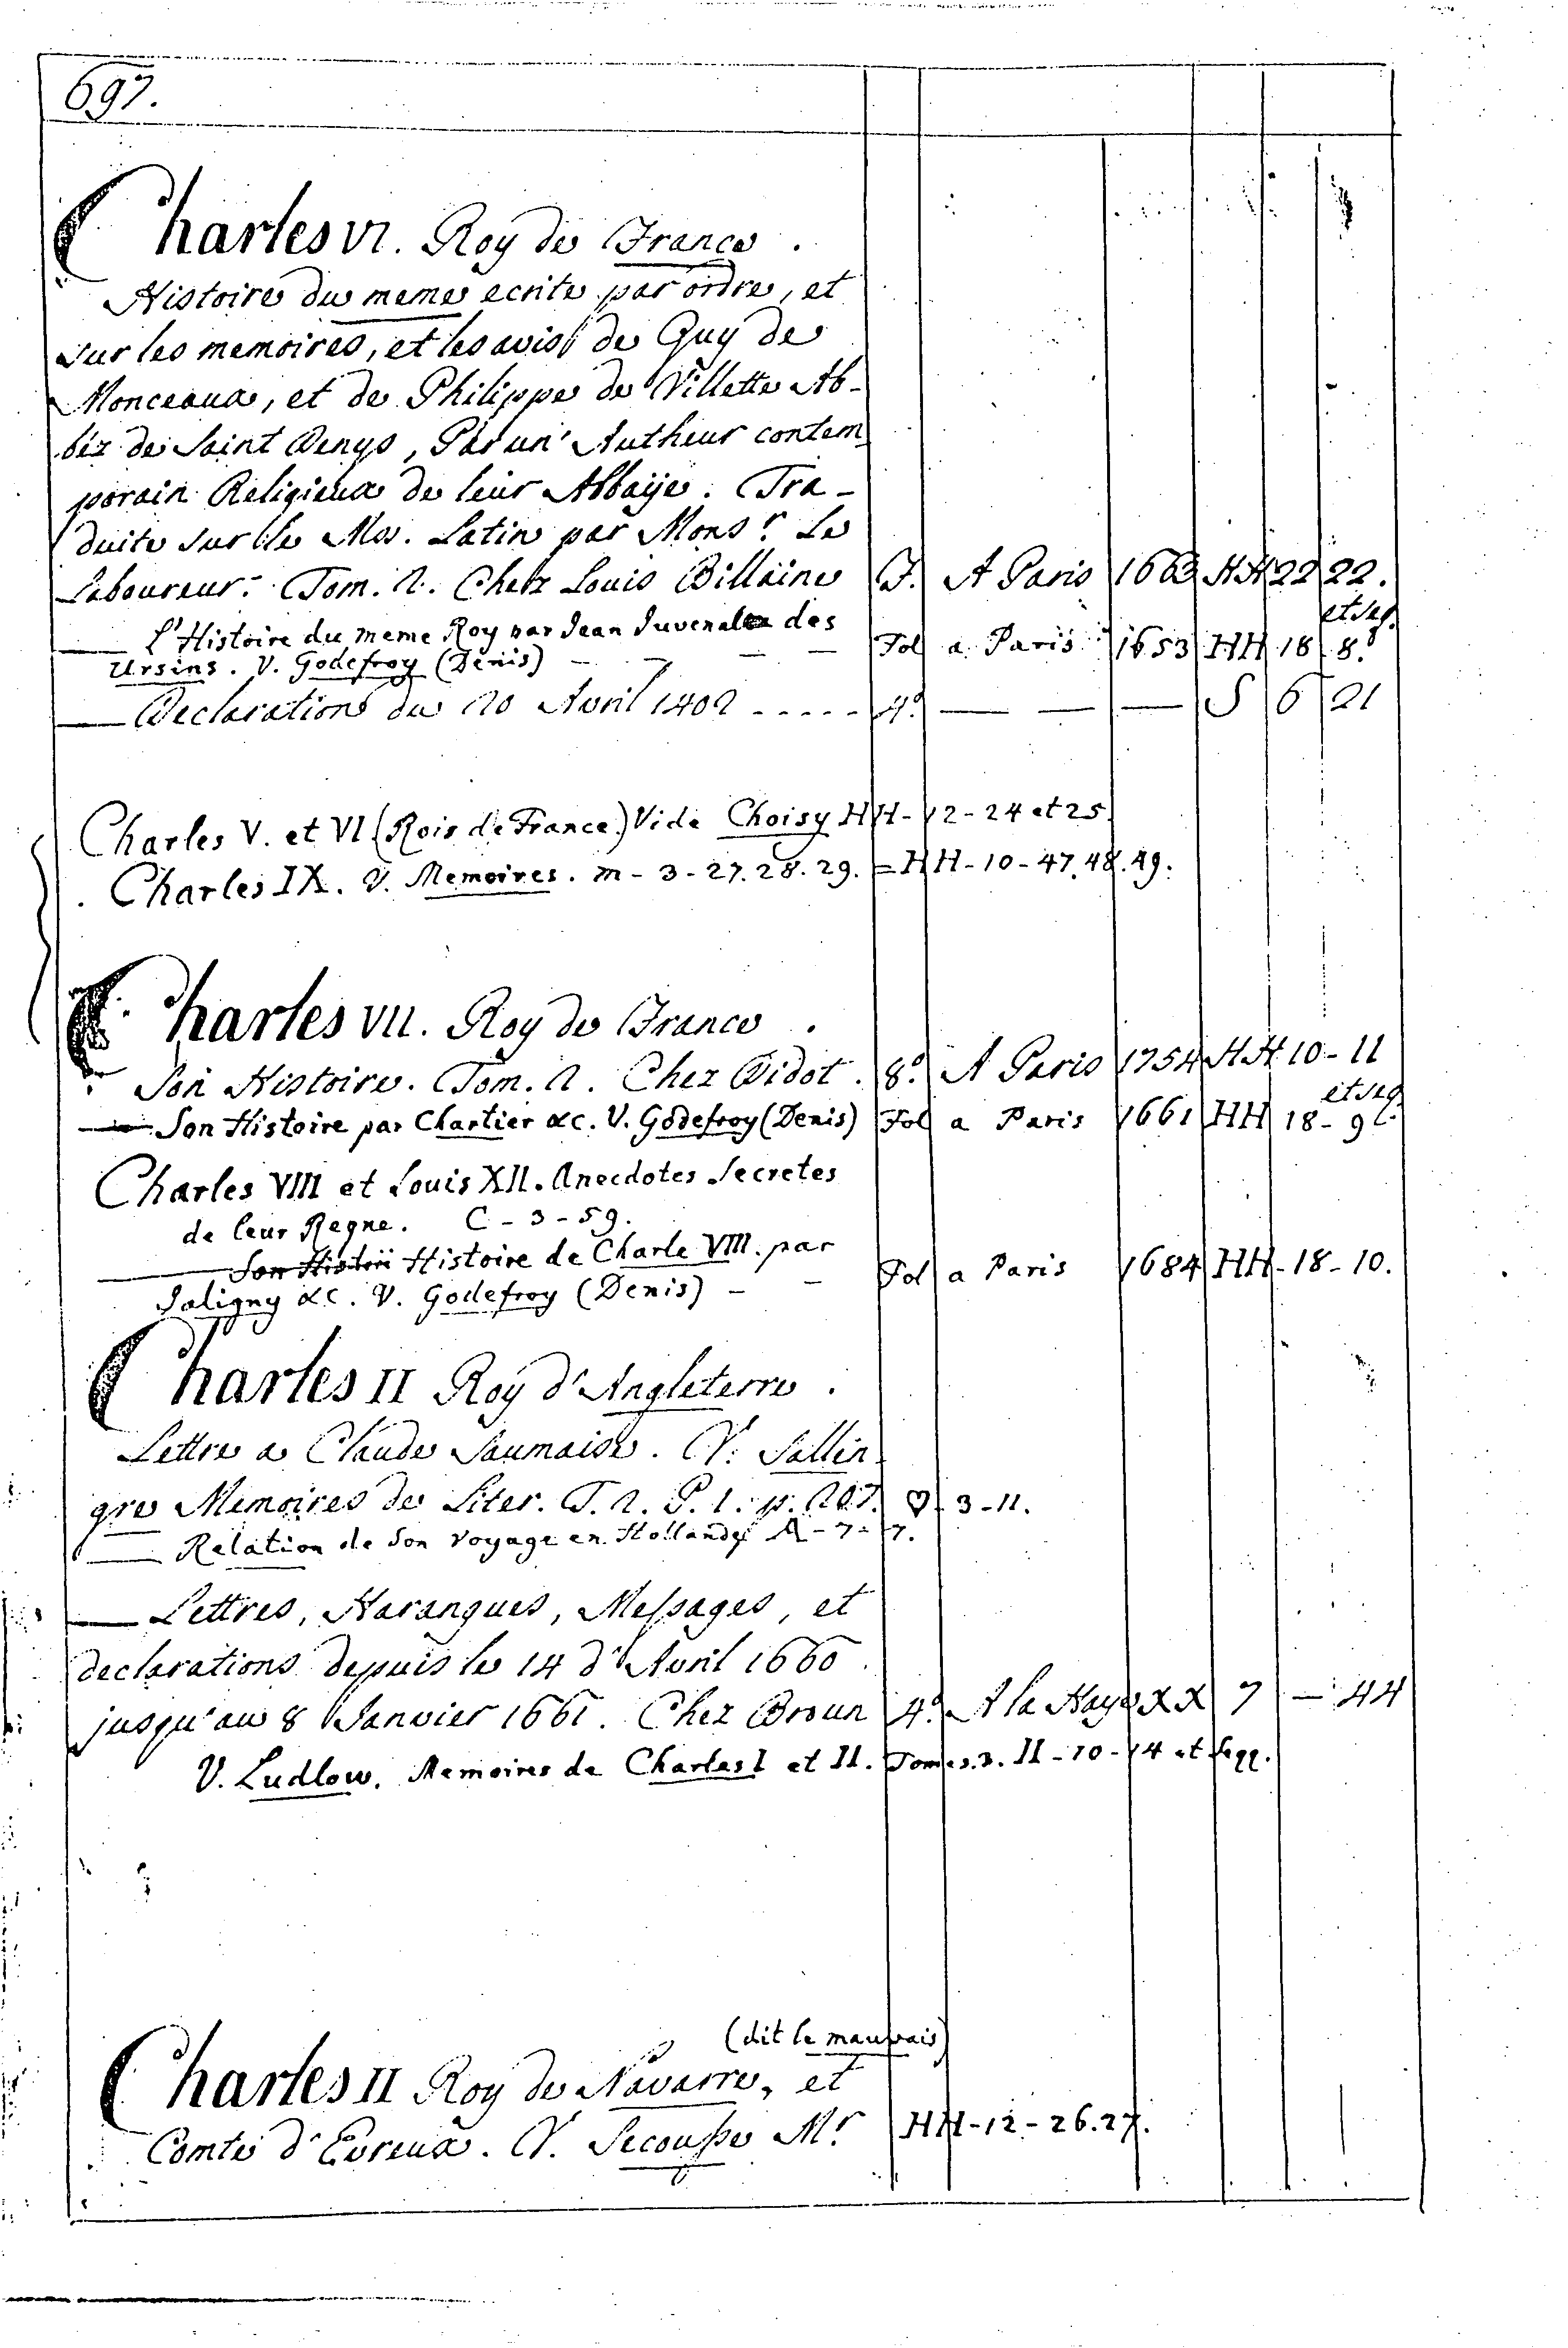 697.
Charles VI. Roy de France.
Histoire du meme ecrite par ordre, et
sur les memoires, et les avis de Guy de
Monceaux, et de Philippe de Villette Ab-
béz de Saint Denys, Par un Autheur contem
porain Religieux de leur Abbaÿe. Tra-
duite sur le Mss. Latin par Monsr. Le
Laboureur. Tom. 2. Chetz Louis Billaine F. A Paris 1663 HH 22 22.
et seq.
— l'Histoire du meme Roy par Jean Juvenal des
Ursins. V. Godefroy (Denis) — — — — Fol a Paris 1653 HH 18 8.
— Declaration du 20 Avril 1402 ..... 4o. — — — S 6 21
Charles V. et VI (Rois de France.) Vide Choisy HH-12-24 et 25.
Charles IX. V. Memoires. m-3-27.28.29. = HH-10-47.48.49.
Charles VII. Roy de France.
Son Histoire. Tom. 2. Chez Didot. 8o. A Paris 1754 HH 10-11
et seq.
— Son Histoire par Chartier &c. V. Godefroy (Denis) Fol a Paris 1661 HH 18-9
Charles VIII et Louis XII. Anecdotes Secretes
de leur Regne. C-3-59.
— Son Histori Histoire de Charle VIII. par
Jaligny &c. V. Godefroy (Denis) — — Fol a Paris 1684 HH-18-10.
Charles II Roy d'Angleterre.
Lettre a Claude Saumaise. V. Sallen
gre Memoires de Liter. T. 2. P. 1. p. ♡-3-11.
— Relation de Son Voyage en Hollande A-7-7.
— Lettres, Harangues, Messages, et
declarations depuis le 14 d'Avril 1660
jusqu'au 8 Janvier 1661. Chez Broun 4o. A la Haye XX 7 — 44
V. Ludlow. Memoires de Charles I et II. Tomes.3. II-10-14 et seqq.
(dit le mauvais)
Charles II Roy de Navarre, et
Comte d'Evreux. V. Secousse Mr. HH-12-26.27.